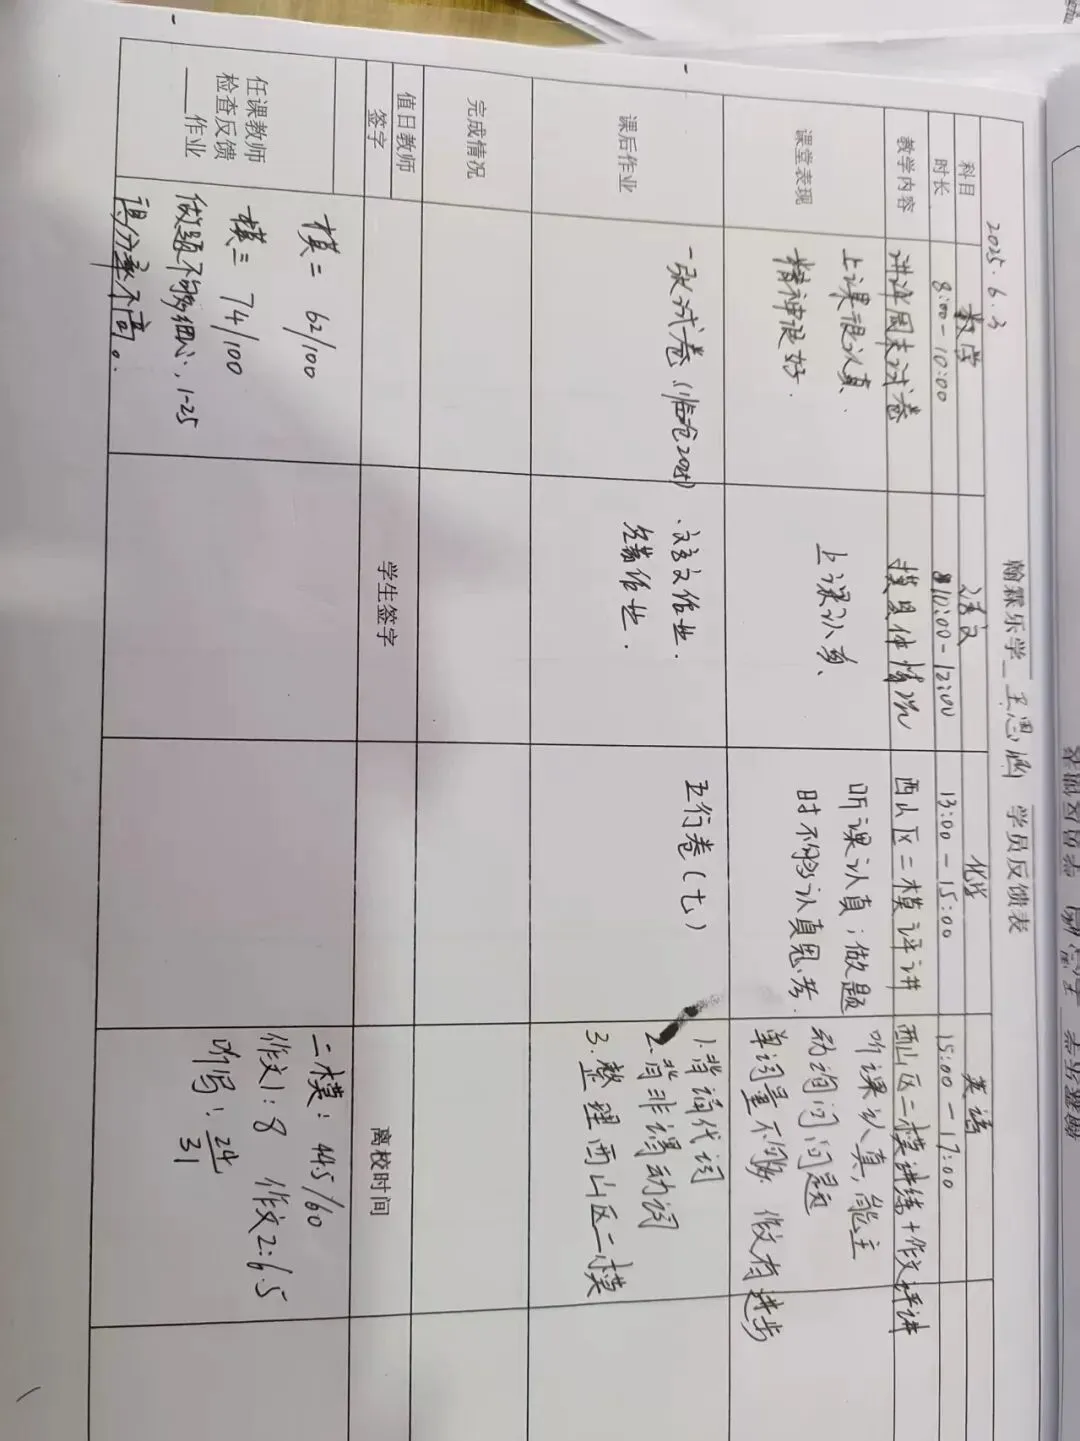 2025.6.3
翰霖乐学 王思涵 学员反馈表
科目 数学 语文 化学 英语
时长 8:00-10:00 10:00-12:00 13:00-15:00 15:00-17:00
教学内容 讲评周末试卷 模具体情况 西山区二模评讲 西山区二模讲练+作文评讲
课堂表现
上课很认真.
精神很好.
上课认真、
听课认真；做题
时不够认真思考.
听课认真，能主
动询问问题
单词量不够 作文有进步
课后作业
一张试卷(临沧2025)
、文言文作业.
名著作业.
五行卷(七)
1.背诵代词
2.背非谓动词
3.整理西山区二模
完成情况
值日教师
签字
学生签字
离校时间
任课教师
检查反馈
作业
模二 62/100
模三 74/100
做题不够细心，1-25
得分率不高。
二模：44.5/60
作文1：8 作文2：6.5
听写：24/31